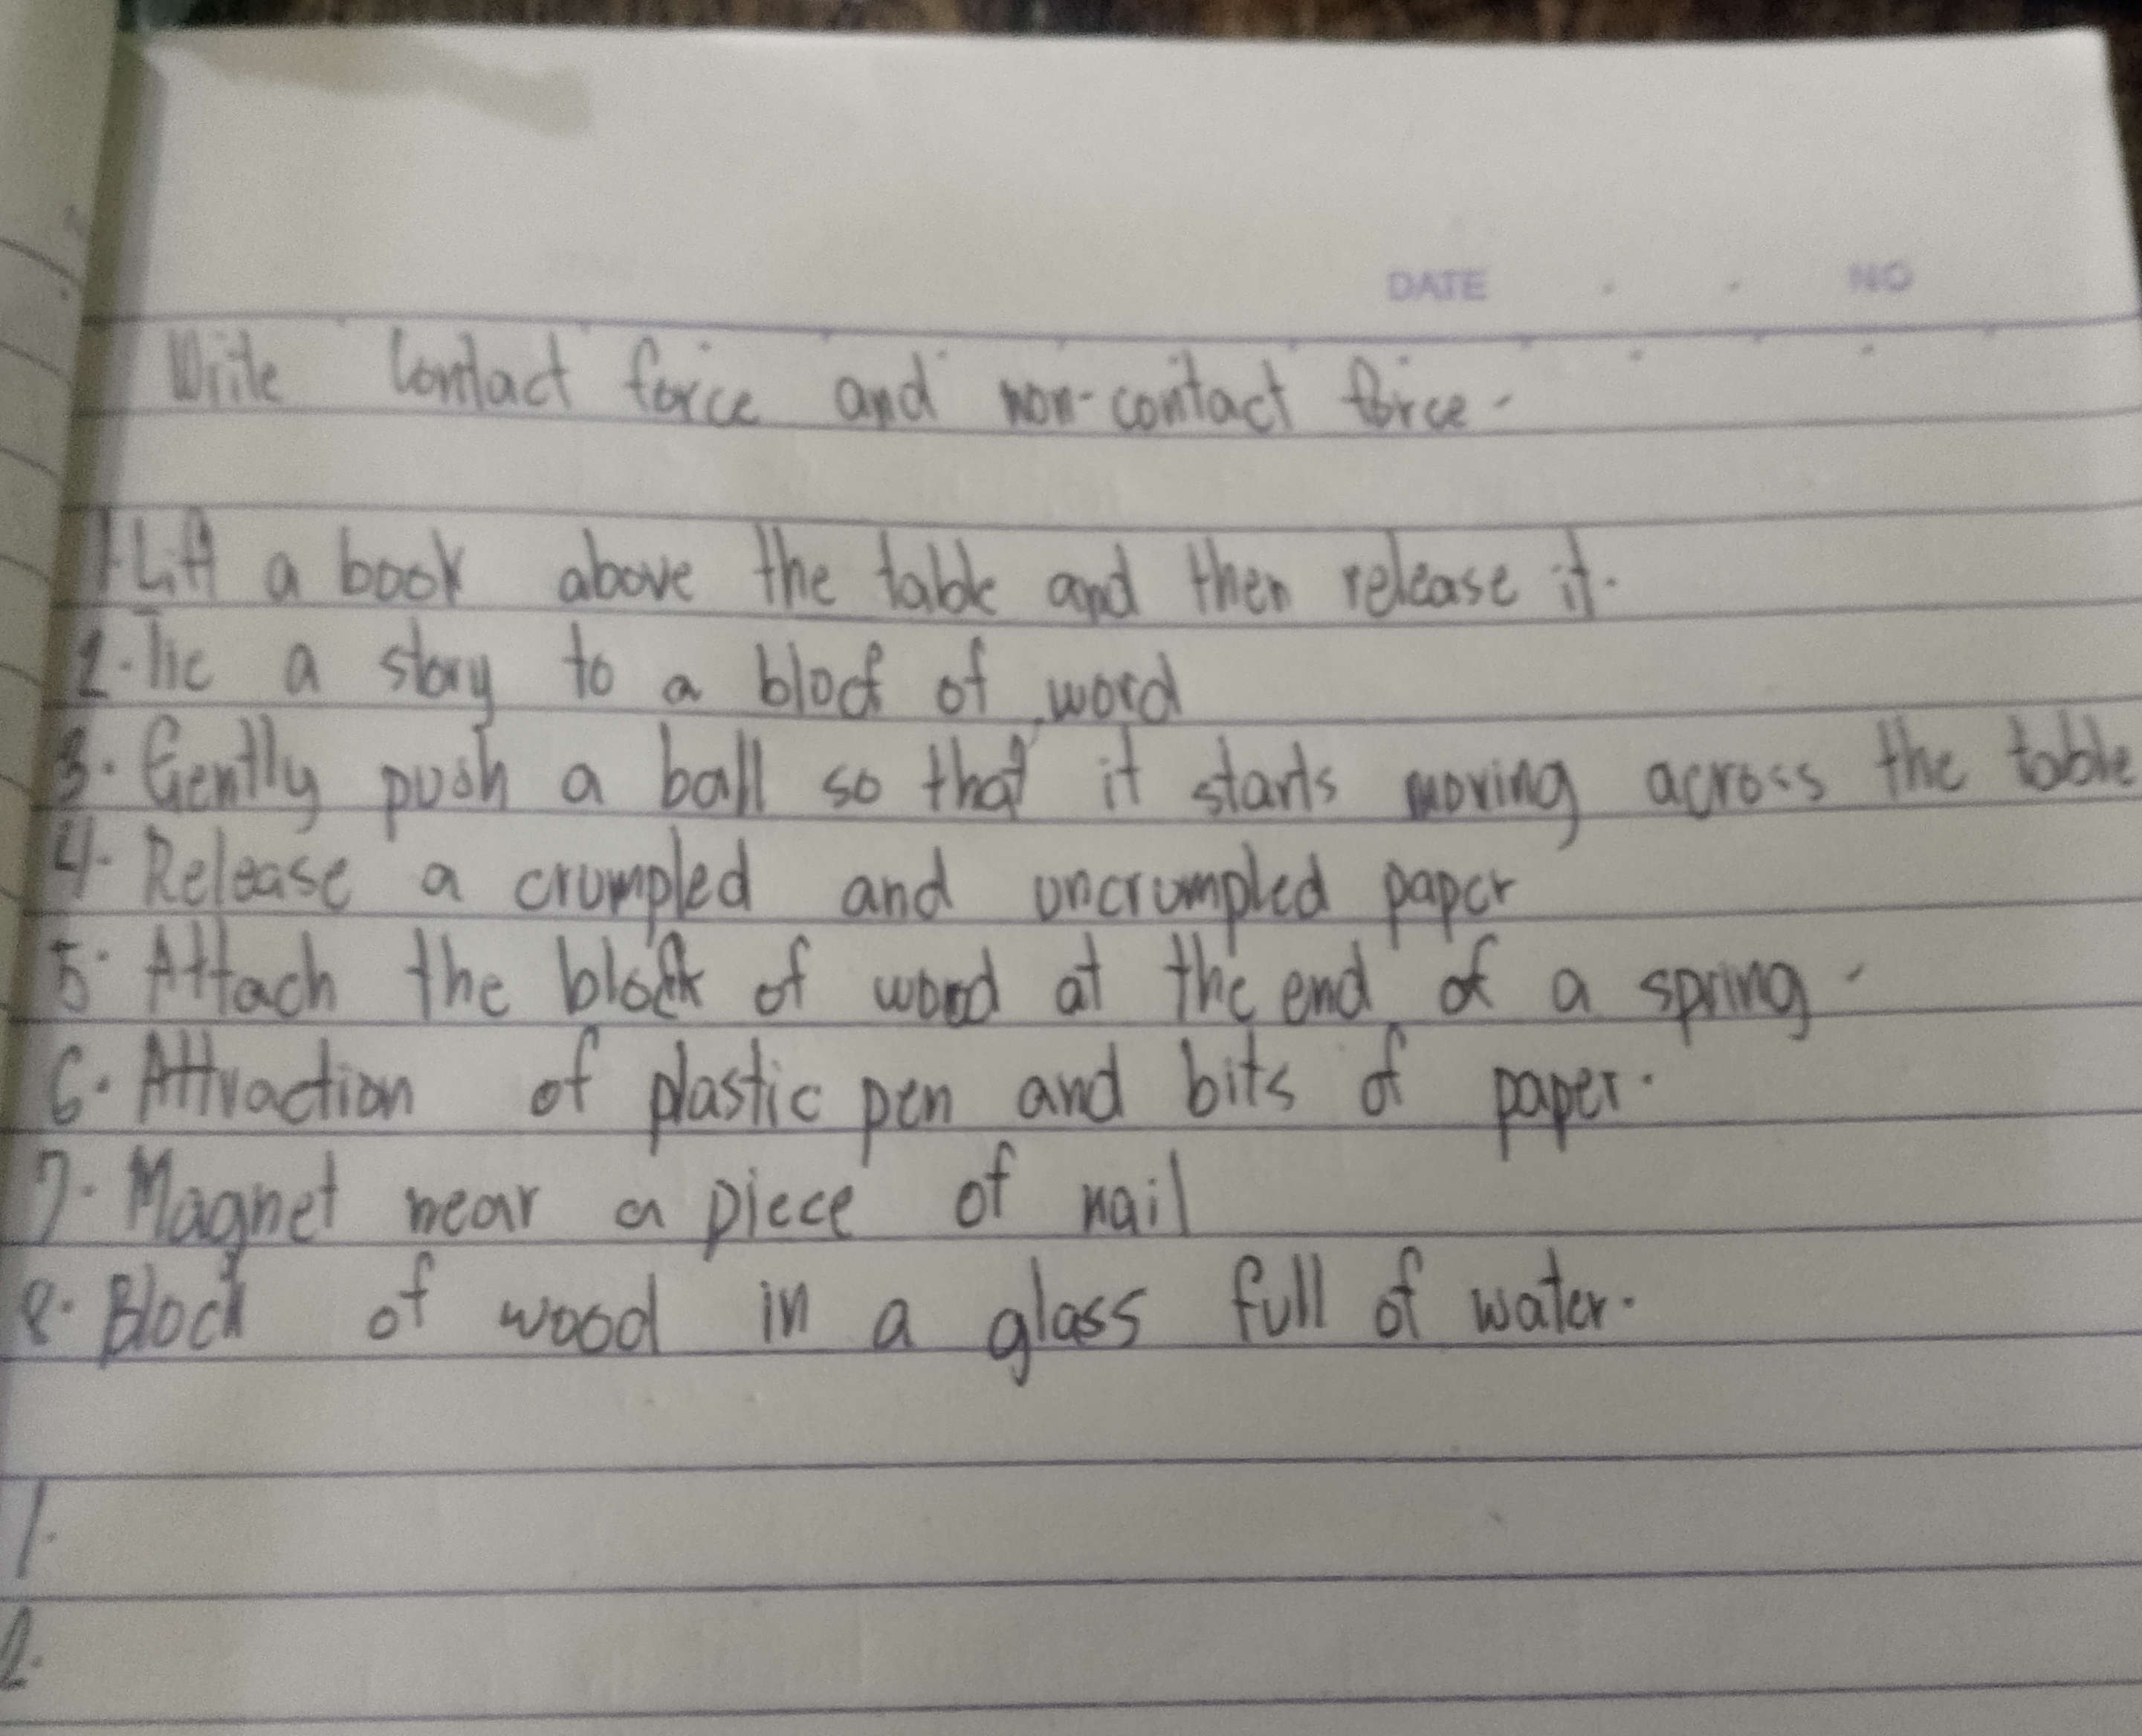 DATE . . NO
Write Contact force and non-contact force.
1. Lift a book above the table and then release it.
2. Tie a story to a block of word
3. Gently push a ball so that it starts moving across the table
4. Release a crumpled and uncrumpled paper
5. Attach the block of wood at the end of a spring.
6. Attraction of plastic pen and bits of paper.
7. Magnet near a piece of nail
8. Block of wood in a glass full of water.
1.
2.